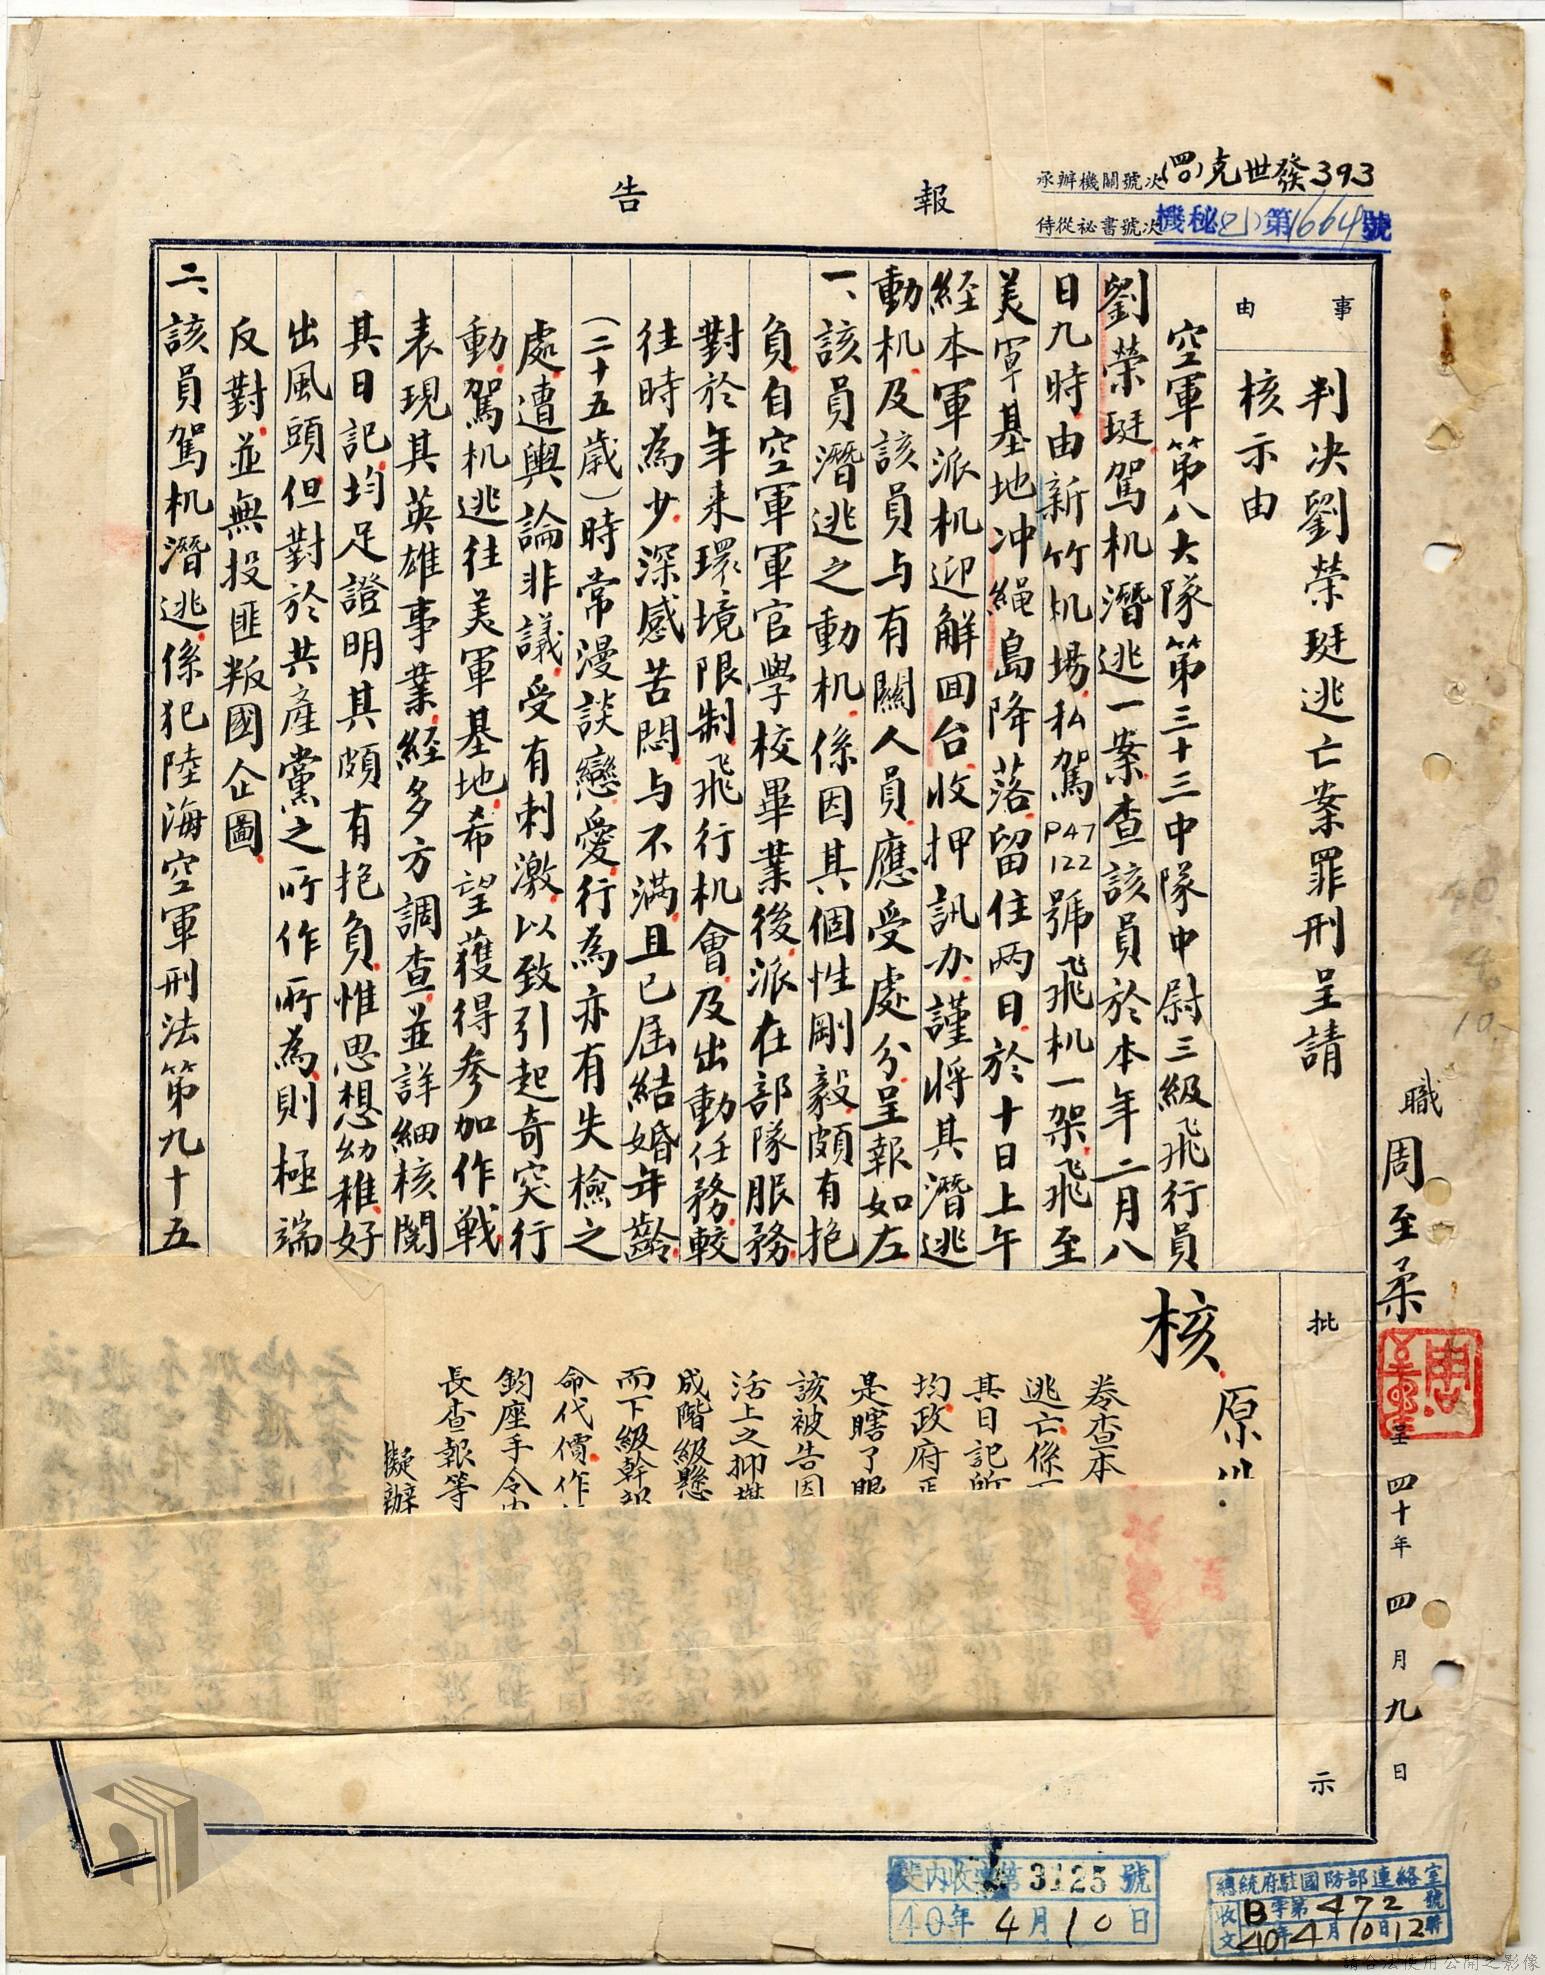 報告
承辦機關號次(四0)克世發393
侍從祕書號次機秘(乙)第1664號
事由
判决劉榮珽逃亡案罪刑呈請
核示由
空軍第八大隊第三十三中隊中尉三級飛行員
劉榮珽駕机潛逃一案查該員於本年二月八
日九時由新竹机場私駕P47122號飛机一架飛至
美軍基地冲繩島降落留住两日於十日上午
経本軍派机迎解囬台收押訊办謹將其潛逃
動机及該員与有關人員應受處分呈報如左
一、該員潛逃之動机係因其個性剛毅頗有抱
負自空軍軍官學校畢業後派在部隊服務
對於年来環境限制飛行机會及出動任務較
往時為少深感苦悶与不滿且已屆結婚年齡
(二十五歲)時常漫談戀愛行為亦有失檢之
處遭輿論非議受有刺激以致引起奇突行
動駕机逃往美軍基地希望獲得参加作戰
表現其英雄事業経多方調查並詳細核閱
其日記均足證明其頗有抱負惟思想幼稚好
出風頭但對於共產黨之所作所為則極端
反對並無投匪叛國企圖
二、該員駕机潛逃係犯陸海空軍刑法第九十五
職周至柔
呈四十年四月九日
批示
核
原
卷查本
逃亡係
其日記所
均政府
是瞎了眼
該被告因
活上之抑
成階級懸
而下級幹部
命代價作
鈞座手令
長查報等
擬辦
收 第3125號
40年4月10日
總統府駐國防部連絡室
收文B字第472號
40年4月10日12時
請合法使用公開之影像